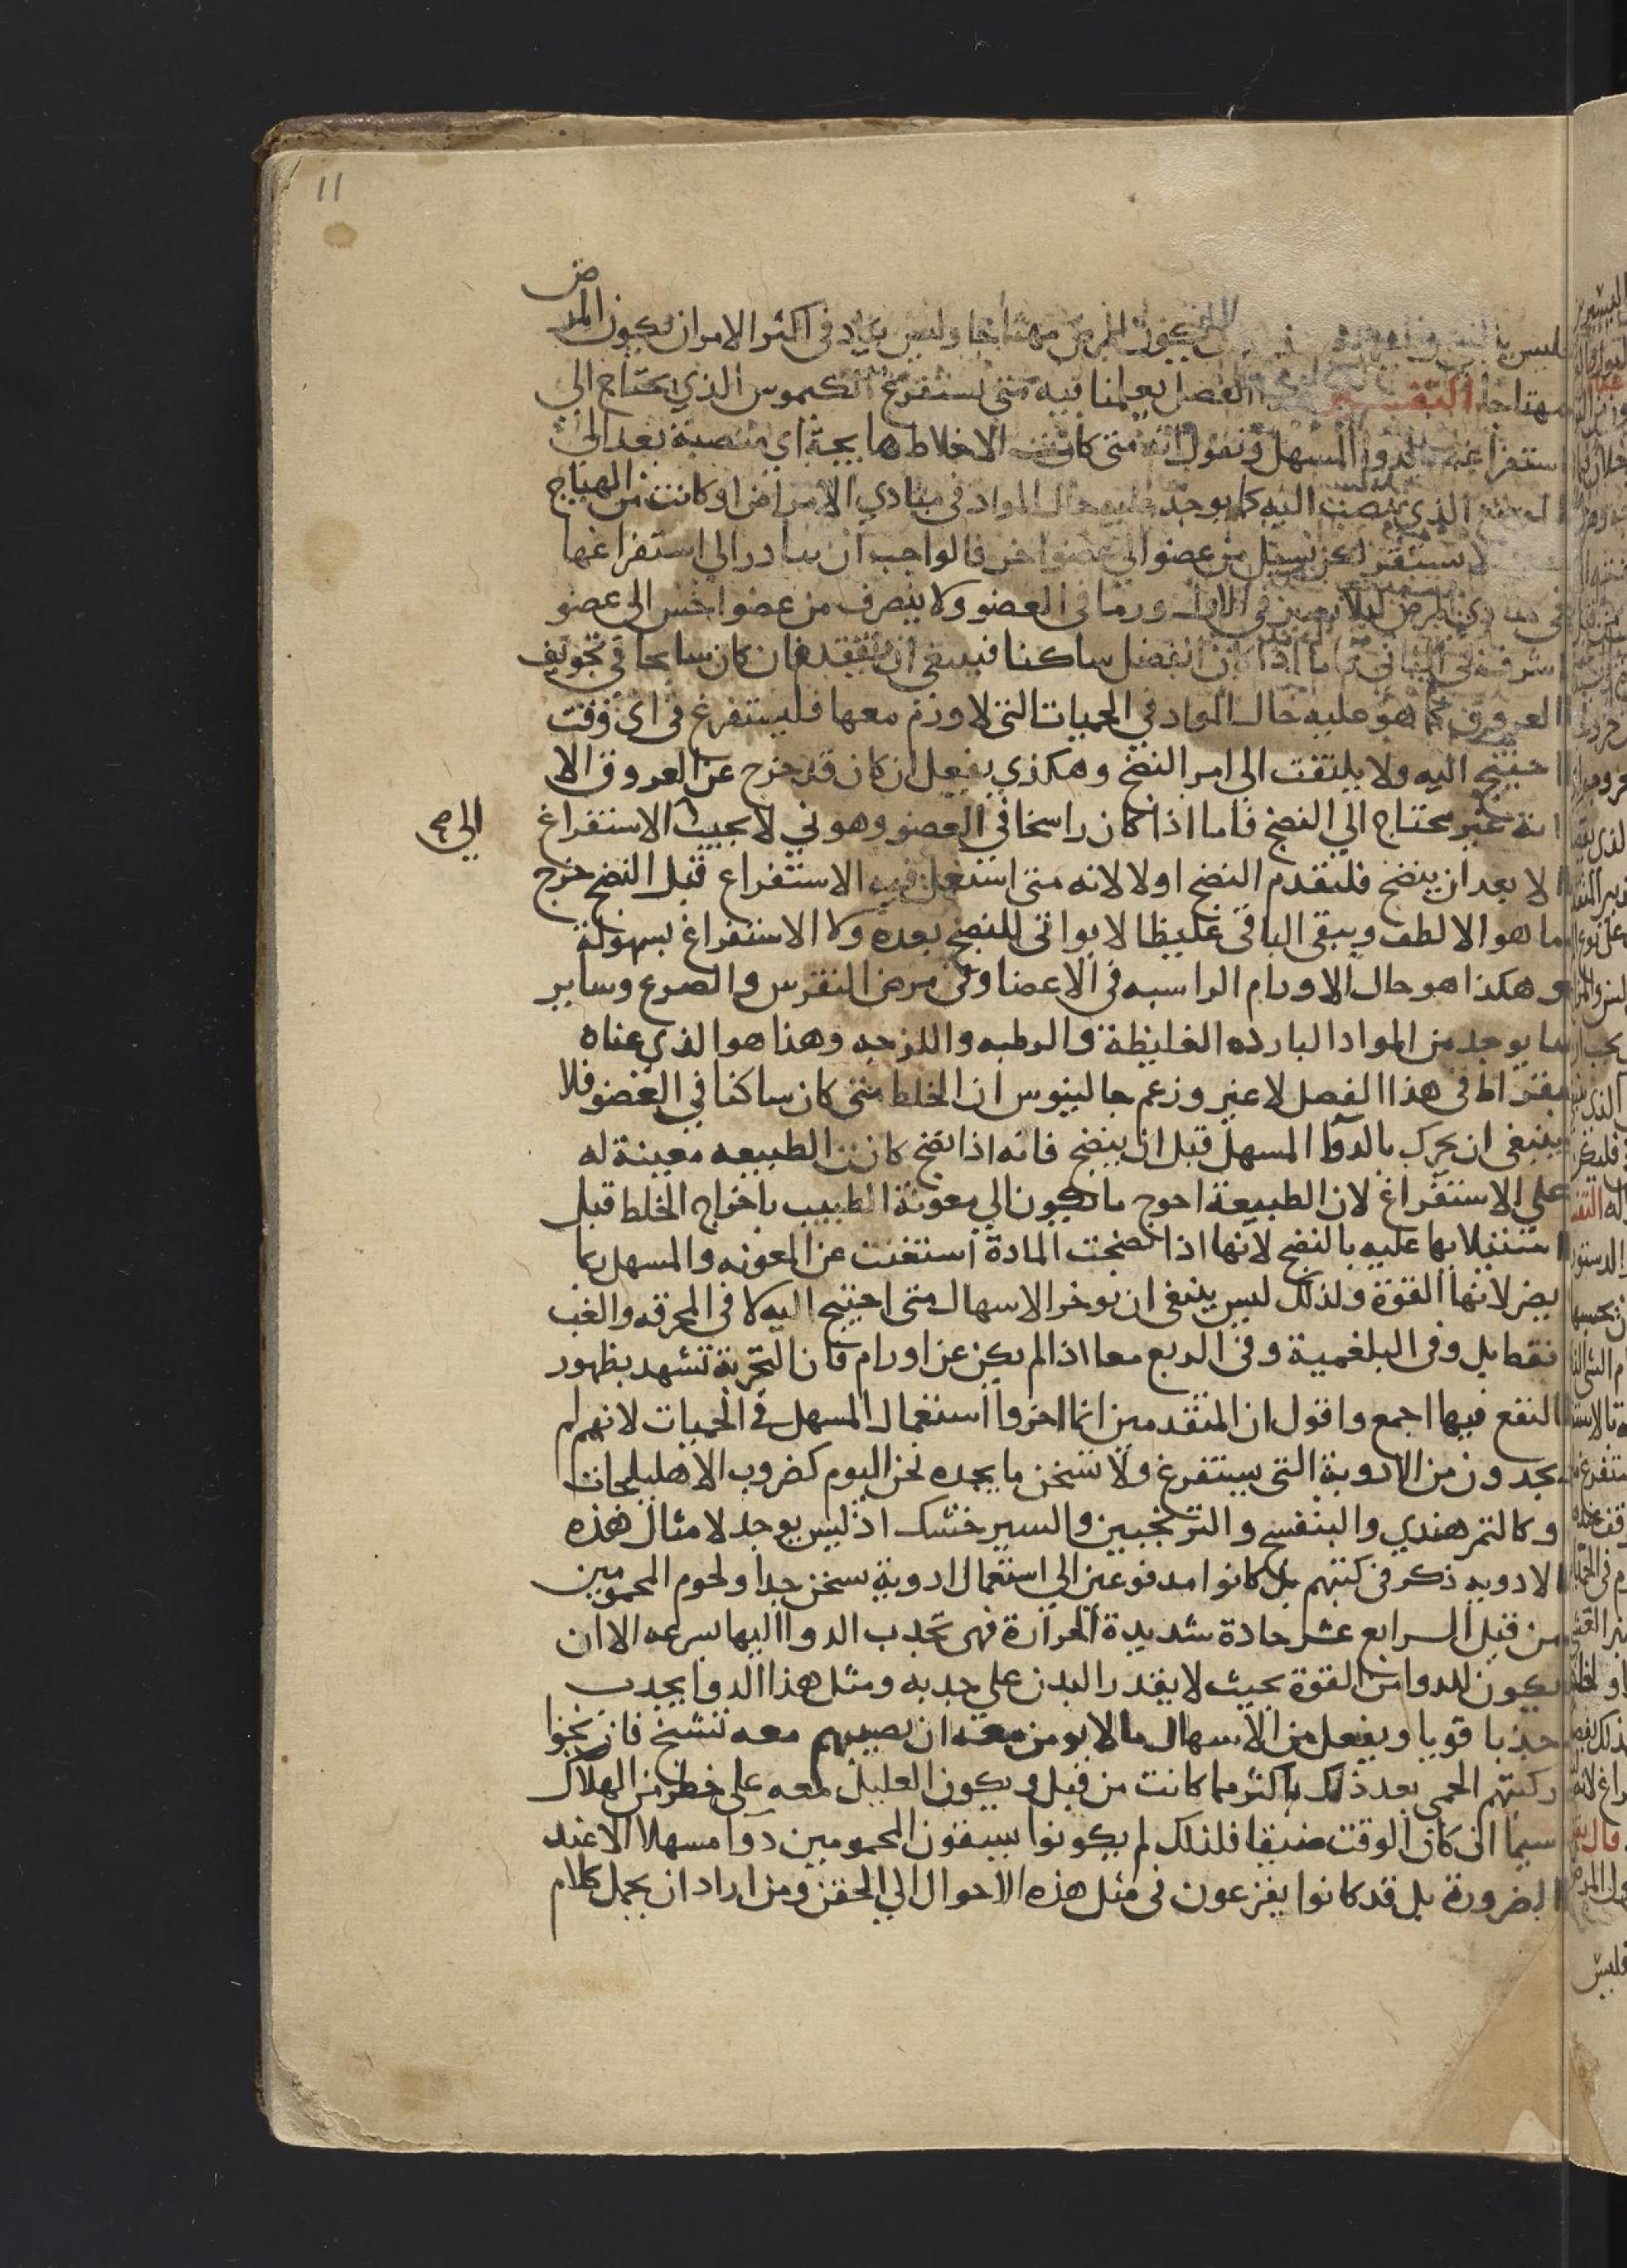 11
يكون المرض مهتاجا وليس يكاد في اكثر الامر ان يكون المرض
مهتاجا التفسير الفصل يعلمنا فيه متى يستفرغ الكيموس الذي يحتاج الى
استفراغه بالدوا المسهل ونقول انه متى كانت الاخلاط هايجة اي منصبة بعد الى
الذي تنصب اليه كما يوجد عليه حال المواد في مبادي الامراض او كانت من الهياج
لا تستقر لكن تسيل من عضو الى عضو اخر فالواجب ان يبادر الى استفراغها
في مبادي المرض ليلا تصير في الاول ورما في العضو ولا ينصرف من عضو اخس الى عضو
اشرف في الثاني واما اذا كان الفضل ساكنا فينبغي ان يتفقد فان كان سابحا في تجويف
العروق كما هو عليه حال المواد في الحميات التي لا ورم معها فليستفرغ في اي وقت
احتيج اليه ولا يلتفت الى امر النضج وهكذي يفعل ان كان قد خرج عن العروق الا
انه غير محتاج الي النضج فاما اذا كان راسخا في العضو وهو ني لا يجيب الاستفراغ
الى صح
الا بعد ان ينضج فليقدم النضج اولا لانه متى استعمل فيه الاستفراغ قبل النضج خرج
ما هو الالطف ويبقى الباقي غليظا لا يواتي للنضج بعده ولا الاستفراغ بسهولة
وهكذا هو حال الاورام الراسبه في الاعضا وفي مرض النقرس والصرع وساير
ما يوجد من المواد البارده الغليظة والرطبه واللزجه وهذا هو الذي عناه
بقراط في هذا الفصل لا غير وزعم جالينوس ان الخلط متى كان ساكنا في العضو فلا
ينبغي ان يحرك بالدوا المسهل قبل ان ينضج فانه اذا نضج كانت الطبيعه معينة له
على الاستفراغ لان الطبيعة احوج ما تكون الي معونة الطبيب باخراج الخلط قبل
استيلايها عليه بالنضج لانها اذا انضجت المادة استغنت عن المعونه والمسهل بما
يضر لانها القوة ولذلك ليس ينبغي ان نوخر الاسهال متى احتيج اليه لا في المحرقه والغب
فقط بل وفي البلغمية وفي الربع معا اذا لم يكن عن اورام فان التجربة تشهد بظهور
النفع فيها اجمع واقول ان المتقدمين انما اخروا استعمال المسهل في الحميات لانهم لم
يجدون من الادوية التي تستفرغ ولا تسخن ما يجده نحن اليوم كضروب الاهليلجات
وكالتمر هندي والبنفسج والترنجبين والسير خشك اذ ليس يوجد لامثال هذه
الادويه ذكر في كتبهم بل كانوا مدفوعين الي استعمال ادوية تسخن جدا ولحوم المحمومين
من قبل السرايع عشر حادة شديدة الحرارة فهي تجذب الدوا اليها بسرعه الا ان
يكون للدوا من القوة بحيث لا يقدر البدن على جدبه ومثل هذا الدوا يجدب
جذبا قويا ويفعل من الاسهال ما لا يومن معه ان يصيبهم معه تشنج فان نجوا
ركبتهم الحمى بعد ذلك باكثر مما كانت من قبل ويكون العليل معه على خطر من الهلاك
سيما ان كان الوقت ضيقا فلذلك لم يكونوا يسقون المحمومين دوا مسهلا الا عند
الضرورة بل قد كانوا يفزعون في مثل هذه الاحوال الي الحقن ومن اراد ان يجمل كلام